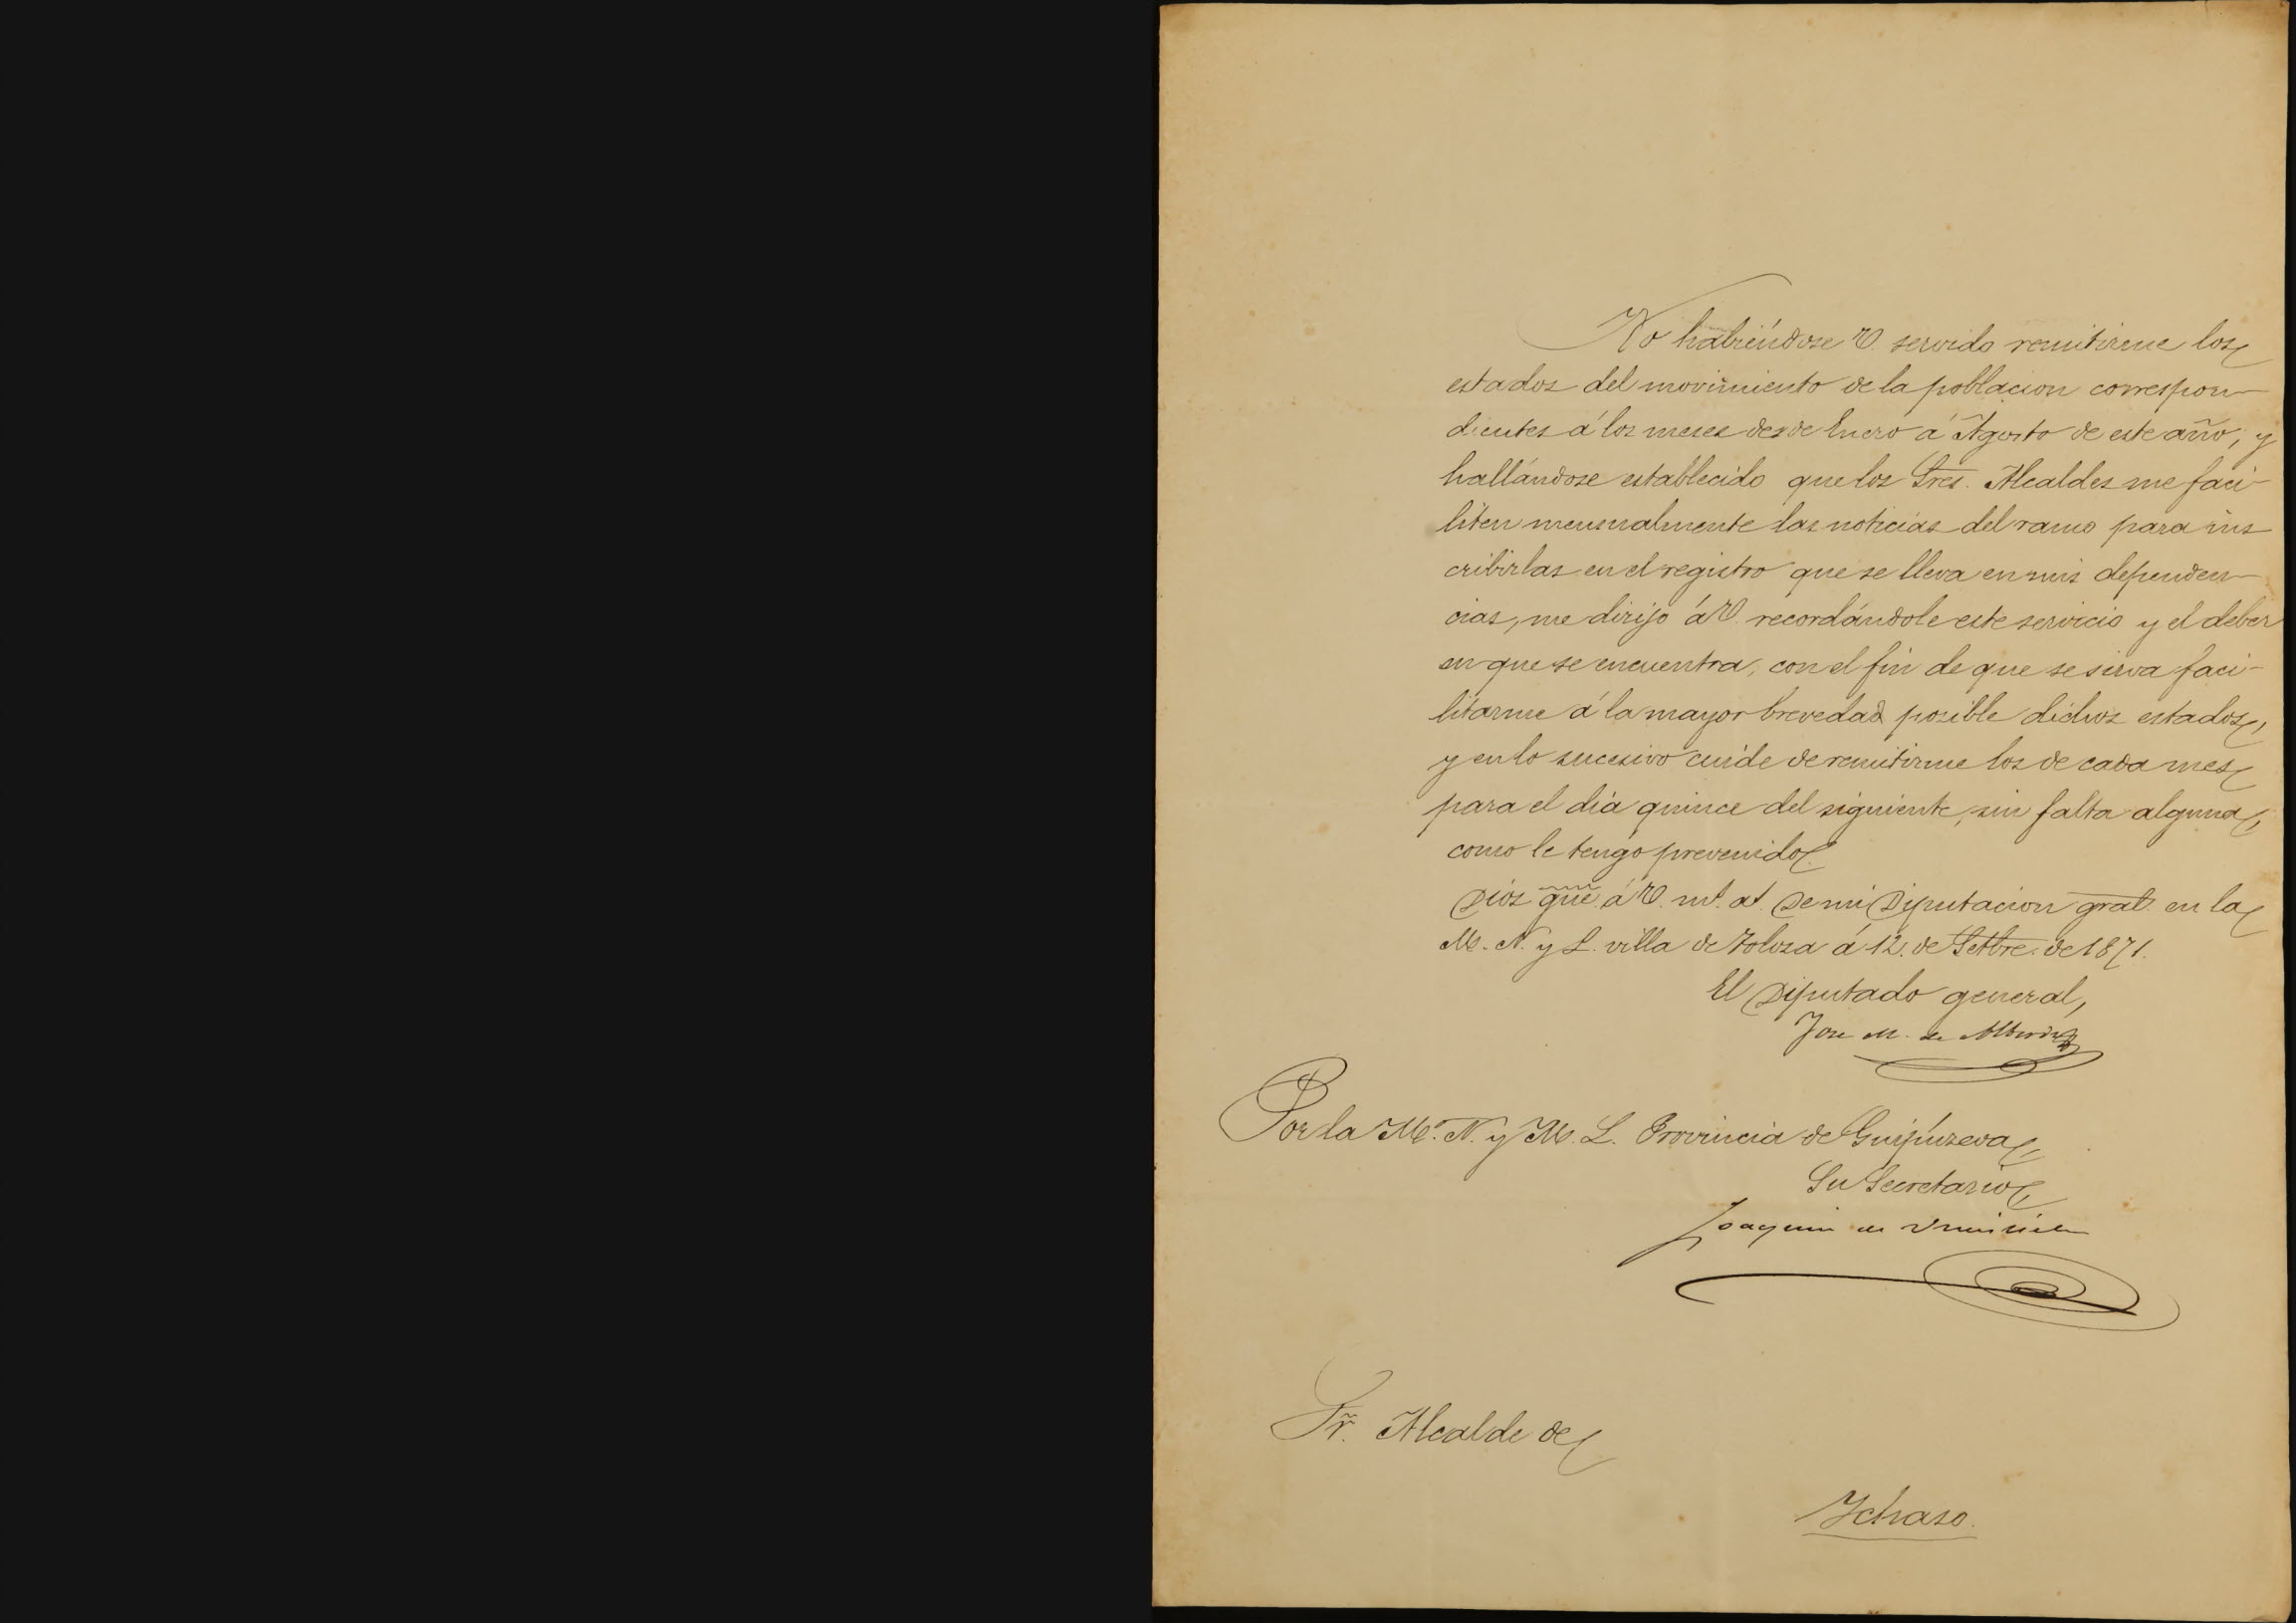 No habiéndose V. servido remitirme los
estados del movimiento de la poblacion correspon-
dientes á los meses desde Enero á Agosto de este año, y
hallándose establecido que los Sres. Alcaldes me faci-
liten mensualmente las noticias del ramo para ins
cribirlas en el registro que se lleva en mis dependen-
cias, me dirijo á V. recordándole este servicio y el deber
en que se encuentra, con el fin de que se sirva faci-
litarme á la mayor brevedad posible dichos estados,
y en lo sucesivo cuide de remitirme los de cada mes
para el dia quince del siguiente, sin falta alguna,
como le tengo prevenido.
Dios gue á V. ms. as. De mi Diputacion gral. en la
M. N. y L. villa de Tolosa á 12. de Setbre. de 1871.
El Diputado general,
Jose M. de
Por la M. N. y M. L. Provincia de Guipúzcoa,
Su Secretario,
Joaquin de
Sr. Alcalde de
Ichaso.